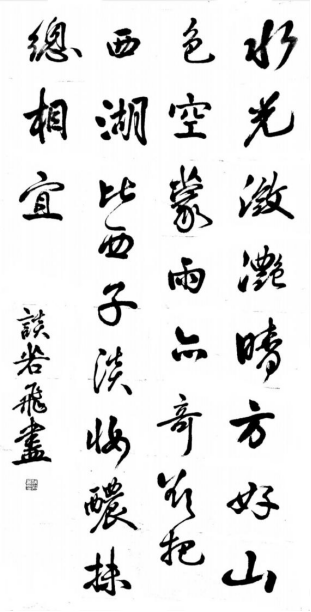 水光潋灧晴方好山
色空蒙雨亦奇欲把
西湖比西子淡妝醲抹
總相宜
談若飛書